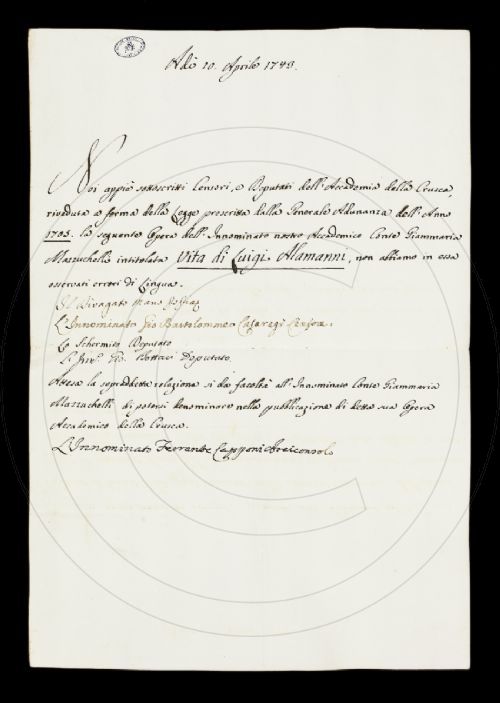 Adì 10. Aprile 1745.
Noi appiè sottoscritti Censori, e Deputati dell'Accademia della Crusca,
riveduta a forma della Legge prescritta dalla Generale Adunanza dell'Anno
1705. la seguente Opera dell'Innominato nostro Accademico Conte Giammaria
Mazzuchelli intitolata Vita di Luigi Alamanni, non abbiamo in essa
osservati errori di Lingua.
Il Divagato
L'Innominato Gio Bartolommeo Casaregi Censore.
Lo Schermito Deputato
L'Inn.º Gio. Bottari Deputato.
Attesa la sopraddetta relazione si dà facoltà all'Innominato Conte Giammaria
Mazzuchelli di potersi denominare nella pubblicazione di detta sua Opera
Accademico della Crusca.
L'Innominato Ferrante Capponi Arciconsolo